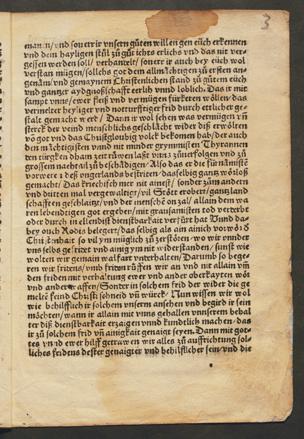 3
eman in/ vnd so n er ir vnsern gůten willen gen euch erkennen
vnd dem hayligen stůl zů gůt ichts erlichs vnd das nit ver-
gessen werden soll/ verhandelt/ sonder ir auch bey euch wol
verstan mügen/ sollichs got dem allmächtigen zů ersten an-
genäm/ vnd gemaynem Christenlichen stand zů gůtem euch
vnd gantzer aydgnoßschafft eerlich vnnd loblich. Das ir mit
sampt vnns/ ewer fleyß vnd vermügen fürkeren wöllen/ das
vermelter hayliger vnd notturfftiger frid durch erliche ge-
stalt gemacht werd/ Dann ir wol sehen was vermügen vñ
sterck der veind menschlichs geschlächt wider diß erwölten
vñ got vnd das Christglaubig volck bekomen hat/ der auch
den mächtigisten vnnd nit minder grymmisten Thyrannen
den türgken
grossern nachtail zů beschädigen. Also das er die für nämiste
porwere des engerlands bestriten/ dasselbig gantz wörloß
gemacht/ Das kriechisch mer nit ainest/ sonder zům andern
vnd dritten mal vergewaltiget/ vil Stött erobert/ gantz land
schafften geschlaitzt/ vnd der menschen on zal/ allain dem wa
ren lebendigen got ergeben/ mit grausamisten tod verderbt
oder durch in ellendist dienstbarkait verfürt hat Vnnd da-
bey ouch Rodis belegert/ das selbig als ain ainich vorwör d
Christenhait so vil ym müglich zů zerstören/ wo wir vnnder
vns selbs gefridt vnd ainig ym nit widerstanden/ sunst wir
wolten wir gemain walfart vnderhalten/ Darumb so bege-
ren wir fridens/ vnd friden rüffen wir an vnd mit allain vñ
den friden mit verhaltung ewer vnd ander oberkayten
vnd anderer assen/ Sonder in solchem frid der wider die ge
melten feind Christi sehnen vñ würck. Nun wissen wir wol
wie behilfflich ir solchem vnserm ansehen vnd begird ir sein
möchten/ wann ir allain mit vnns gehallen vnnserem behal
ter diß dienstbarkait erzaigen vnnd kundelich machen/ das
ir zů solchem frid vñ ainigkait genaigt seyen. Dann mit got-
tes vnd ewer hilff getrawen wir alles zů auffrichtung sol-
liches fridens dester genaigter vnd behilfflicher sein/ vnd die